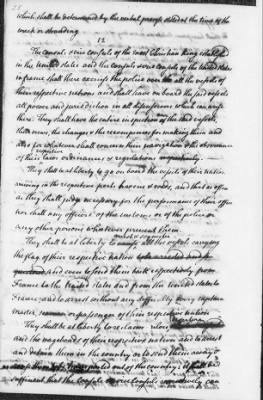 which shall be determined by the verbal process dated at the time of the
wreck or stranding.
12
The Consuls & vice Consuls of the most Christian king established
in the United States and the Consuls & vice Consuls of the United States
in France shall there exercise the police over all the vessels of
their respective nations and shall have on board the said vessels
all power and jurisdiction in all differences which can arise
there. They shall have the entire inspection of the said vessels,
their crews, the changes & the recompences for making them and
also for whatsoever shall concern their navigation & the observance
of their laws ordinances & regulations respectively.
They shall be at liberty to go on board the vessels of their nation
arriving in the respective ports havens & roads, and that as often
as they shall judge necessary for the performance of their office
nor shall any officers of the customs or of the police or
any other persons whatever prevent them.
They shall be at liberty to all the vessels carrying
the flag of their respective nation
and even to send them back respectively from
France to the United states and from the United states to
France, and to arrest without any difficulty every captain
master, or passenger of their respective nation
They shall be at liberty to reclaim
and the vagabonds of their respective nation and to arrest
and detain them in the country or to send them away &
out of the country; it shall be
sufficient that the Consuls & vice Consuls can